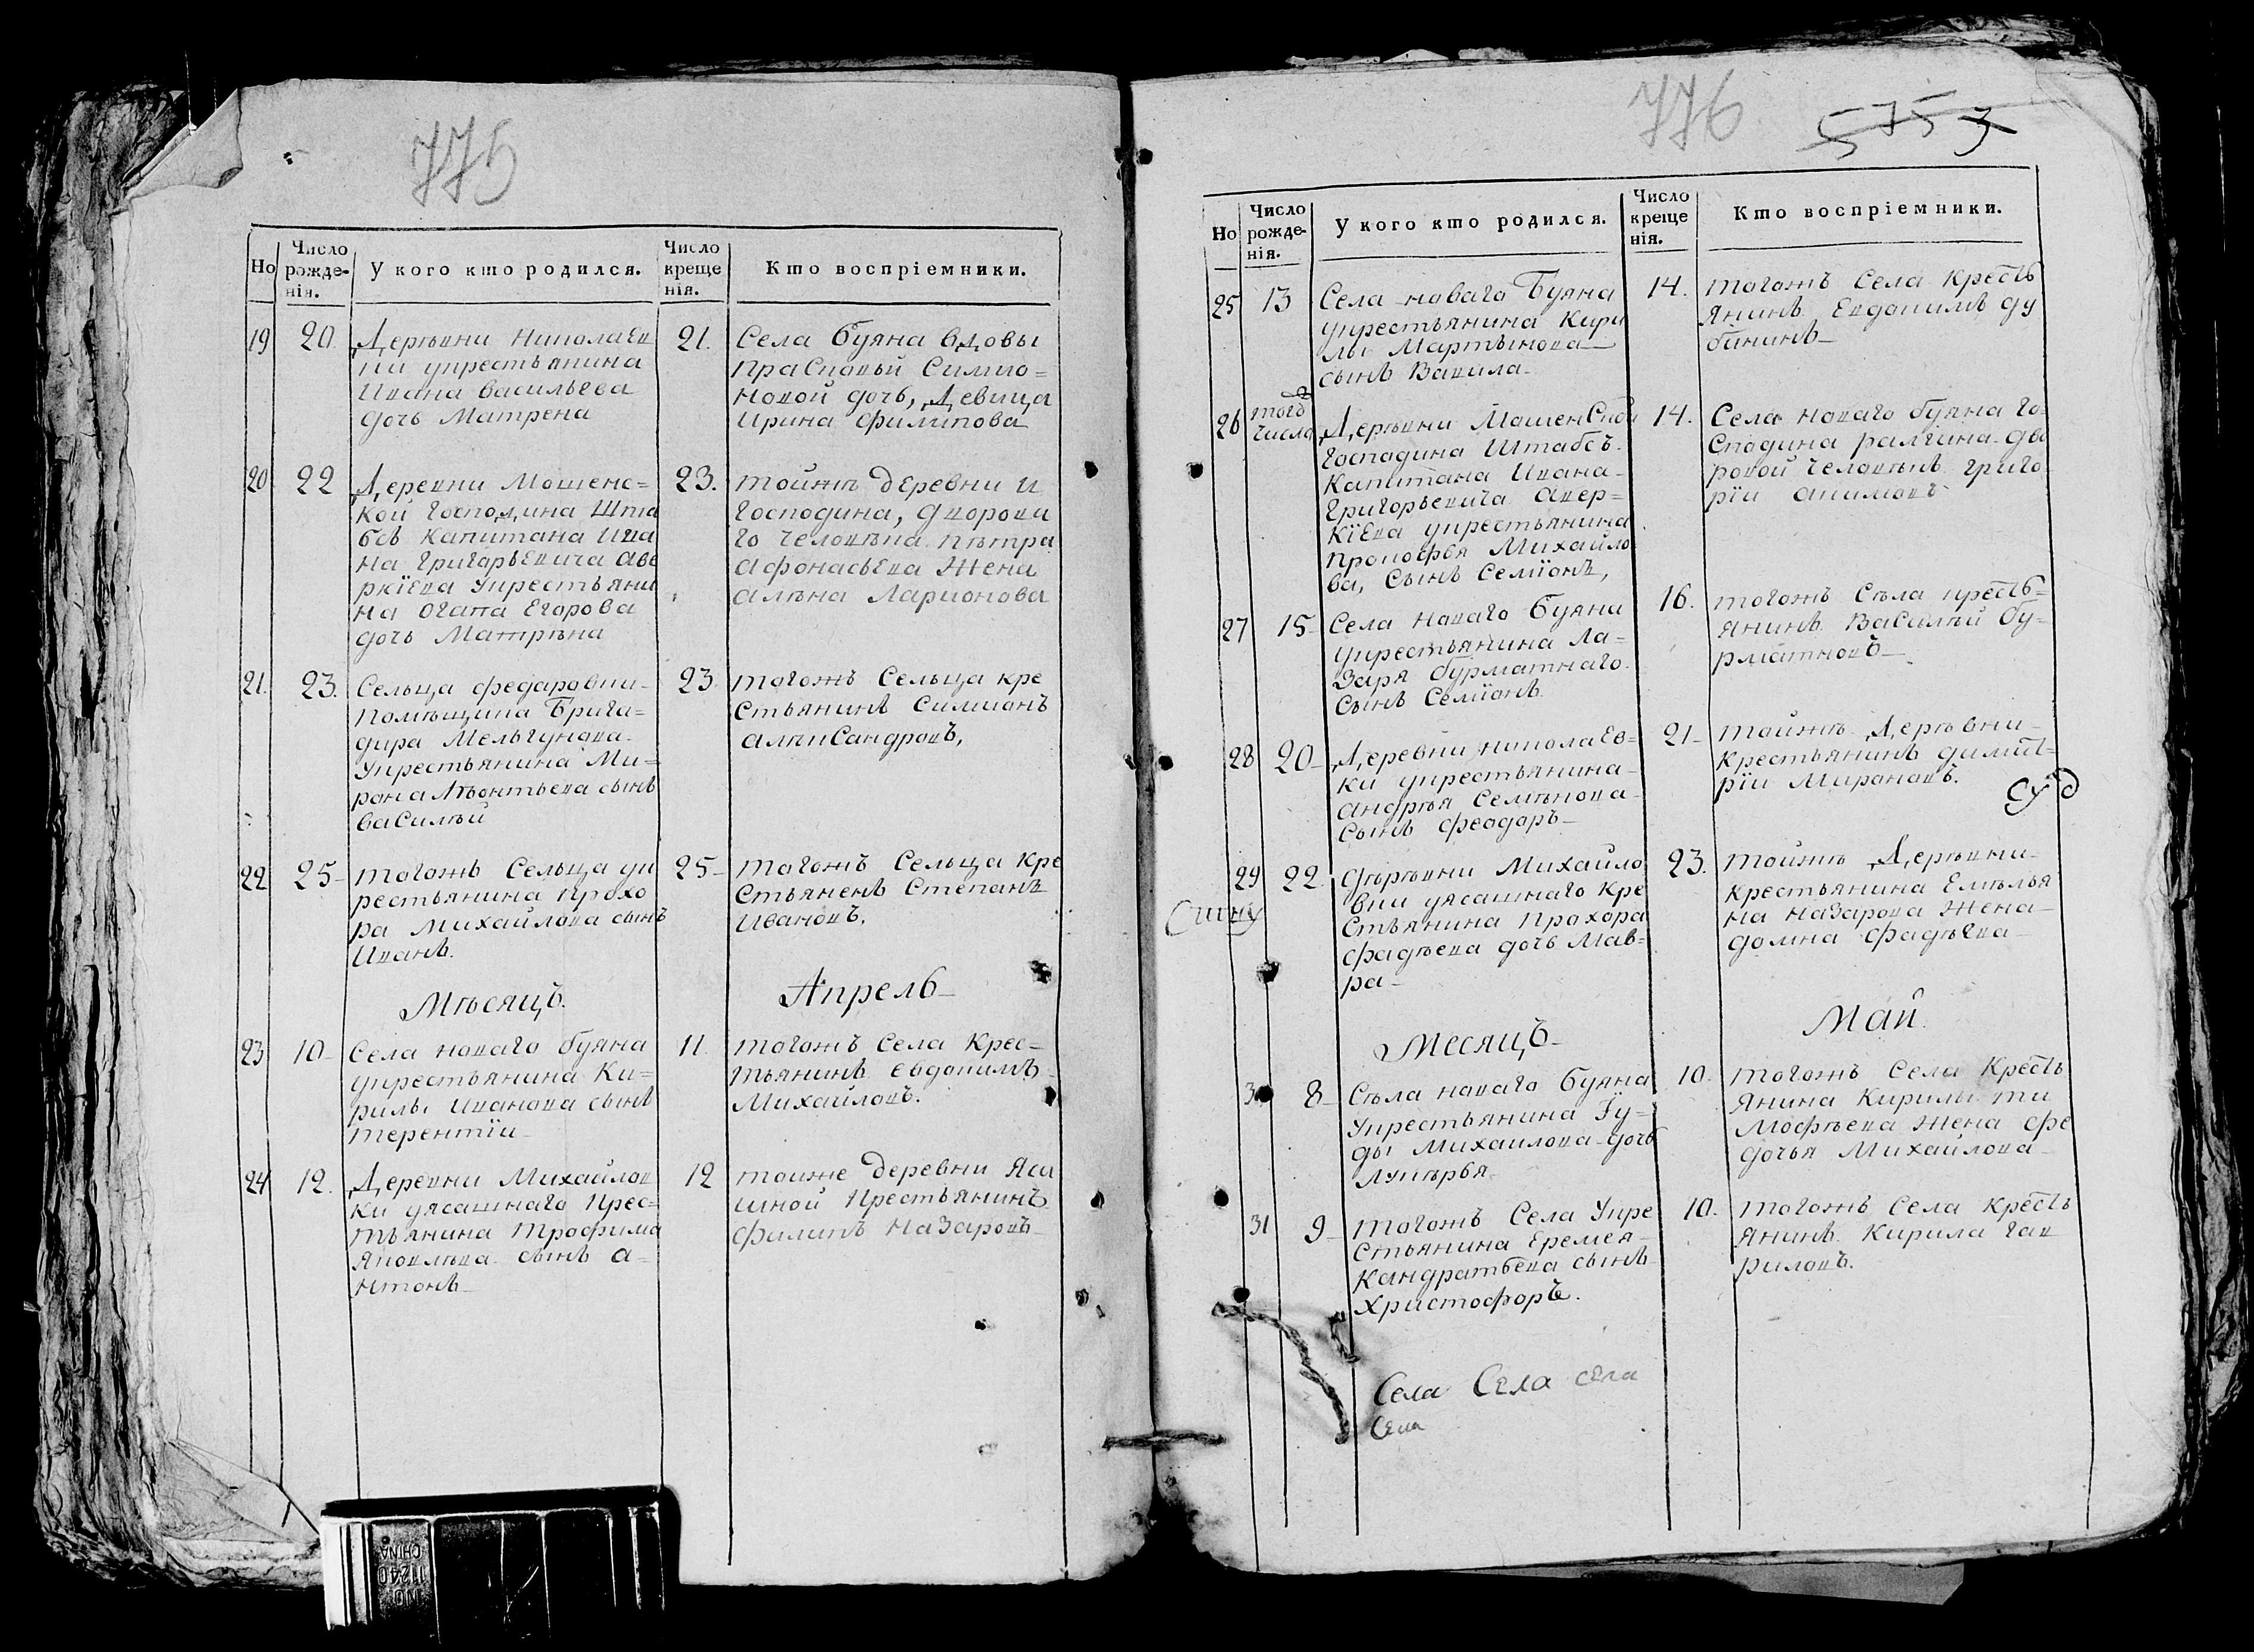 775
Но
Число рожде-нія.
У кого кто родился.
Число креще нія.
Кто воспріемники.
19
20.
Деревни Николаев
ки укрестьянина
Ивана васильева
дочь Матрена
21.
Села буяна вдовы
Прасковьи Симио=
новой дочь, Девица
Ирина филипова
20
22
Деревни Мошенс=
кой господина Шта
бсъ капитана Ива
на григорьевича аве
ркïева укрестьяни
на огапа Егорова
дочь Матрѣна
23.
тойжъ деревни и
господина, двороваго
го человѣка пѣтра
Афонасьева Жена
алѣна Ларионова
21.
23.
Сельца федаровки
помѣщика Брига=
дира Мельгунова
укрестьянина Ми=
рона Лѣонтьева сынъ
василѣй
23.
тогожъ Сельца кре
стьянинъ Симионъ
алѣксандровъ,
22
25
тогожъ Сельца ук
рестьянина прохо
ра михайлова сынъ
Иванъ.
25
тогожъ Сельца кре
стьяненъ Степанъ
Ивановъ.
Мѣсяцъ.
Апрель
23
10
Села новаго буяна
укрестьянина Ки=
рилы Иванова сынъ
терентïи
11.
тогожъ Села крес=
тьянинъ евдокимъ
Михайловъ.
24
12.
Деревни Михайлов
ки уясашнаго крес=
тьянина трофима
яковлева сынъ а=
нтонъ
12
тоиже деревни яса
шной крестьянинъ
филипъ назаровъ
776
5753
Но
Число рожде-нія.
У кого кто родился.
Число креще нія.
Кто воспріемники.
25
13
Села новаго буяна
укрестьянина Кири
лы Мартынова
сынъ Вавила
14.
тогожъ Села кресть
янинъ Евдокимъ ду
бининъ
26
того числа
Деревни Мошенской
господина Штабсъ
капитана Ивана
григорьевича авер=
кïева укрестьянина
прокофья Михайло
ва, сынъ Семïонъ,
14.
Села новаго буяна го=
сподина ралгина дво
ровой человѣкъ григо
рïи акимовъ
27
15
Села новаго буяна
укрестьянина Ла=
заря бурматнаго
сынъ Семïонъ
16.
тогожъ Сѣла кресть=
янинъ василѣй бу=
рматновъ
28
20
Деревни николаев=
ки укрестьянина
андрѣя Семѣнова
сынъ феодоръ
21
тойжъ Деревни
крестьянинъ димит
рïи Мироновъ.
суд
29
22.
Дѣрѣвни Михайло
вки уясашнаго кре
стьянина прохора
фадѣева дочь Мав=
ра
23.
тойжъ Деревни
крестьянина Емѣлья
на назарова жена
домна фадѣева
Месяцъ
Май.
3
8
Сѣла новаго буяна
укрестьянина Їу=
ды михаилова дочь
Лукѣрья
10.
тогожъ Села кресть
янина Кирилы ти
мофѣева жена фе
досья михайлова
31
9
тогожъ Села укре
стьянина еремея
кандратьева сынъ
Христофоръ.
10.
тогожъ Села кресть
янинъ Кирила гав
риловъ.
Села Села села
Села
NO. 11240
CHINA